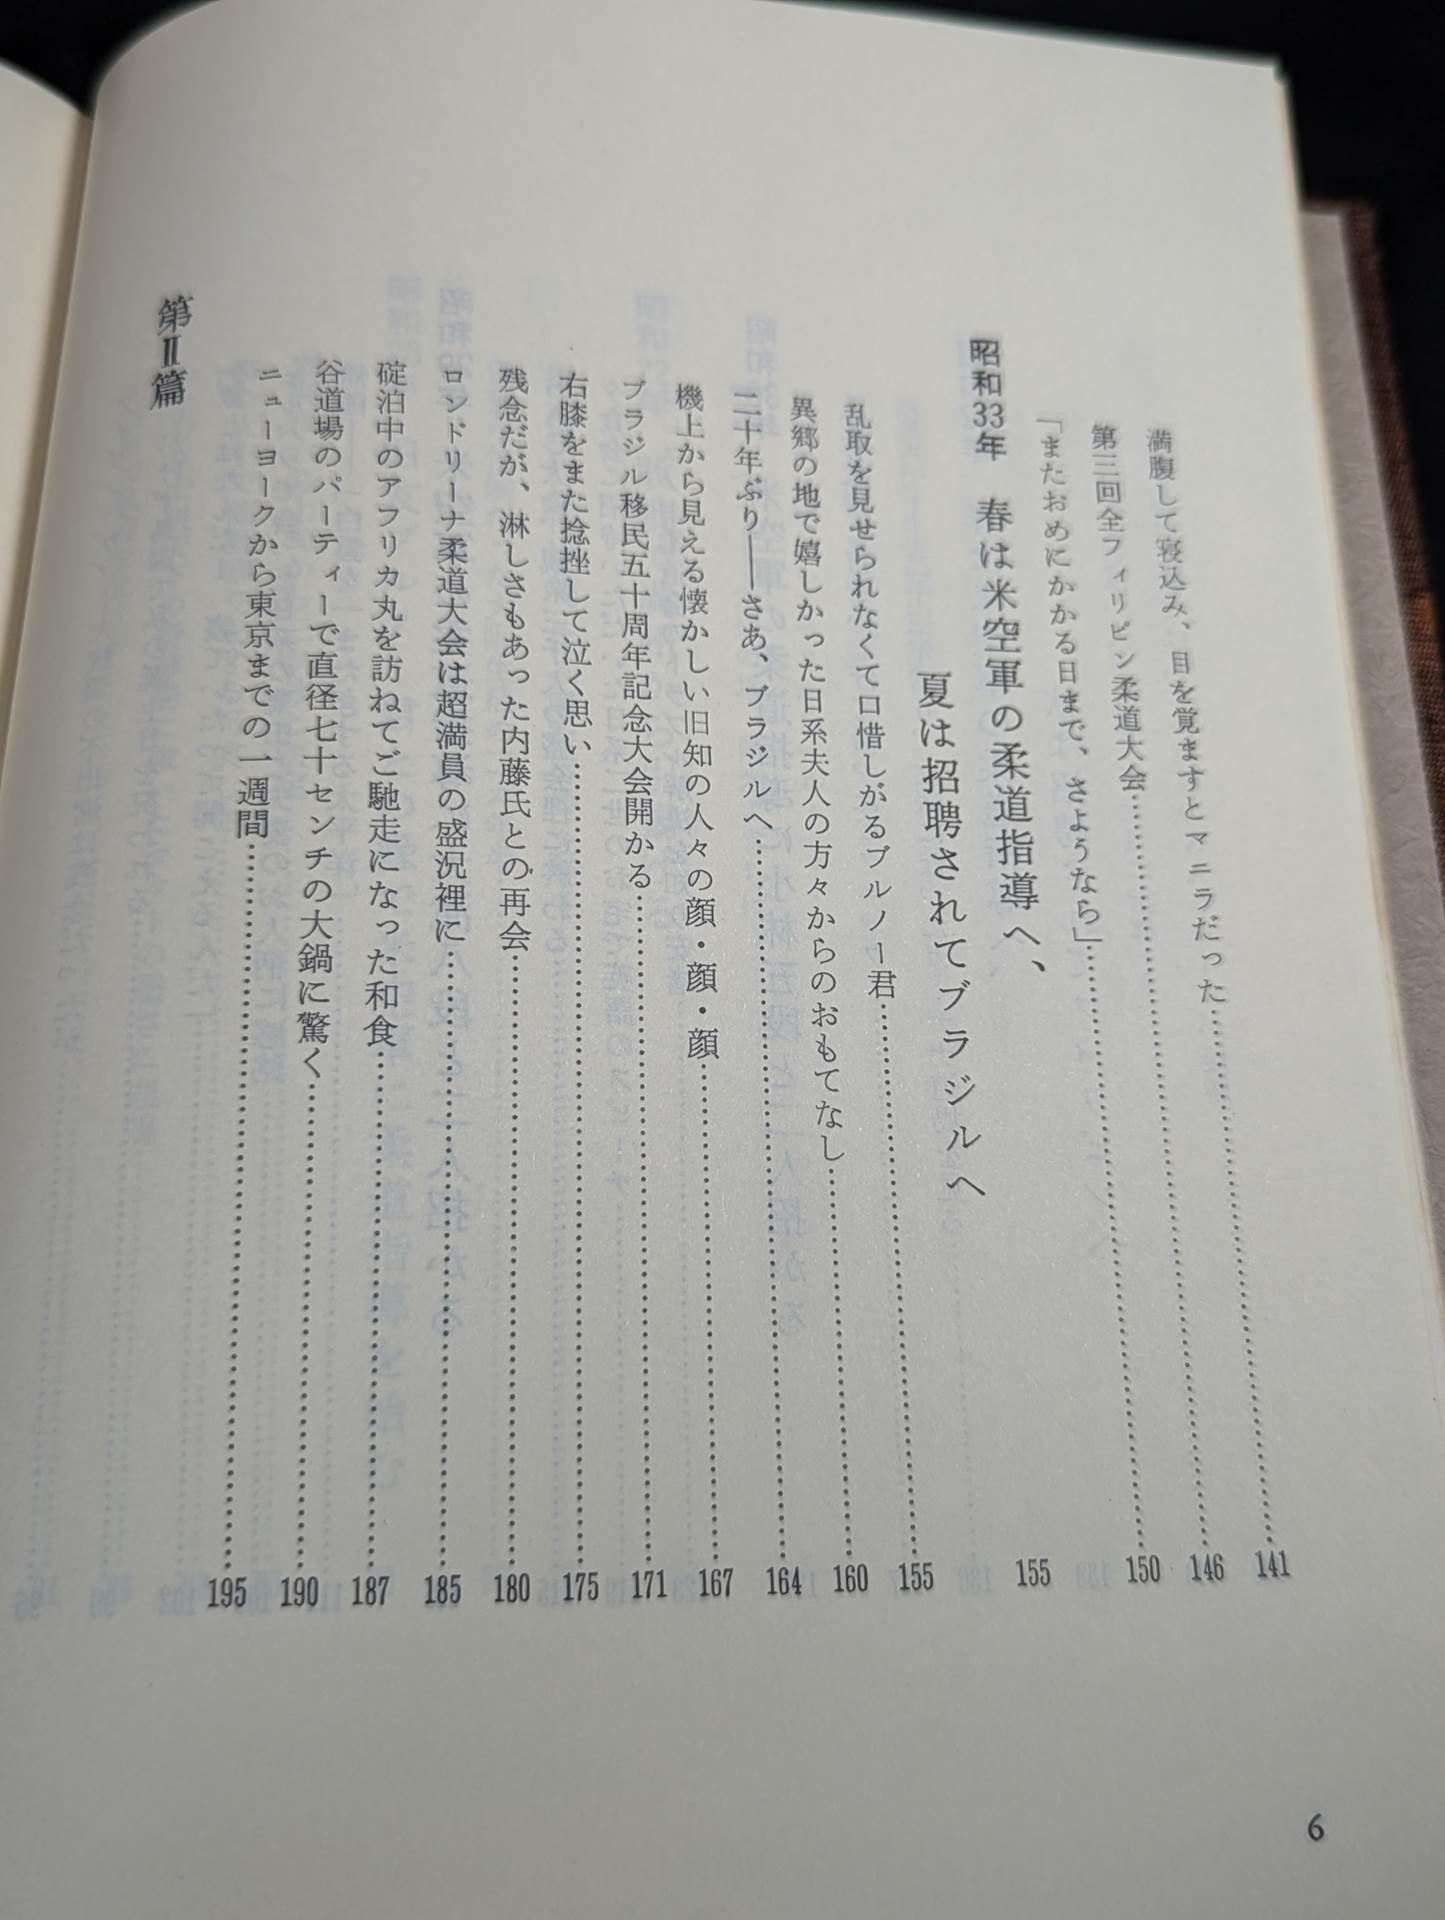 満腹して寝込み、目を覚ますとマニラだった……141
第三回全フィリピン柔道大会……146
「またおめにかかる日まで、さようなら」……150
昭和33年　春は米空軍の柔道指導へ、
夏は招聘されてブラジルへ　155
乱取を見せられなくて口惜しがるブルノー君……155
異郷の地で嬉しかった日系夫人の方々からのおもてなし……160
二十年ぶり――さあ、ブラジルへ……164
機上から見える懐かしい旧知の人々の顔・顔・顔……167
ブラジル移民五十周年記念大会開かる……171
右膝をまた捻挫して泣く思い……175
残念だが、淋しさもあった内藤氏との再会……180
ロンドリーナ柔道大会は超満員の盛況裡に……185
碇泊中のアフリカ丸を訪ねてご馳走になった和食……187
谷道場のパーティーで直径七十センチの大鍋に驚く……190
ニューヨークから東京までの一週間……195
第Ⅱ篇
6